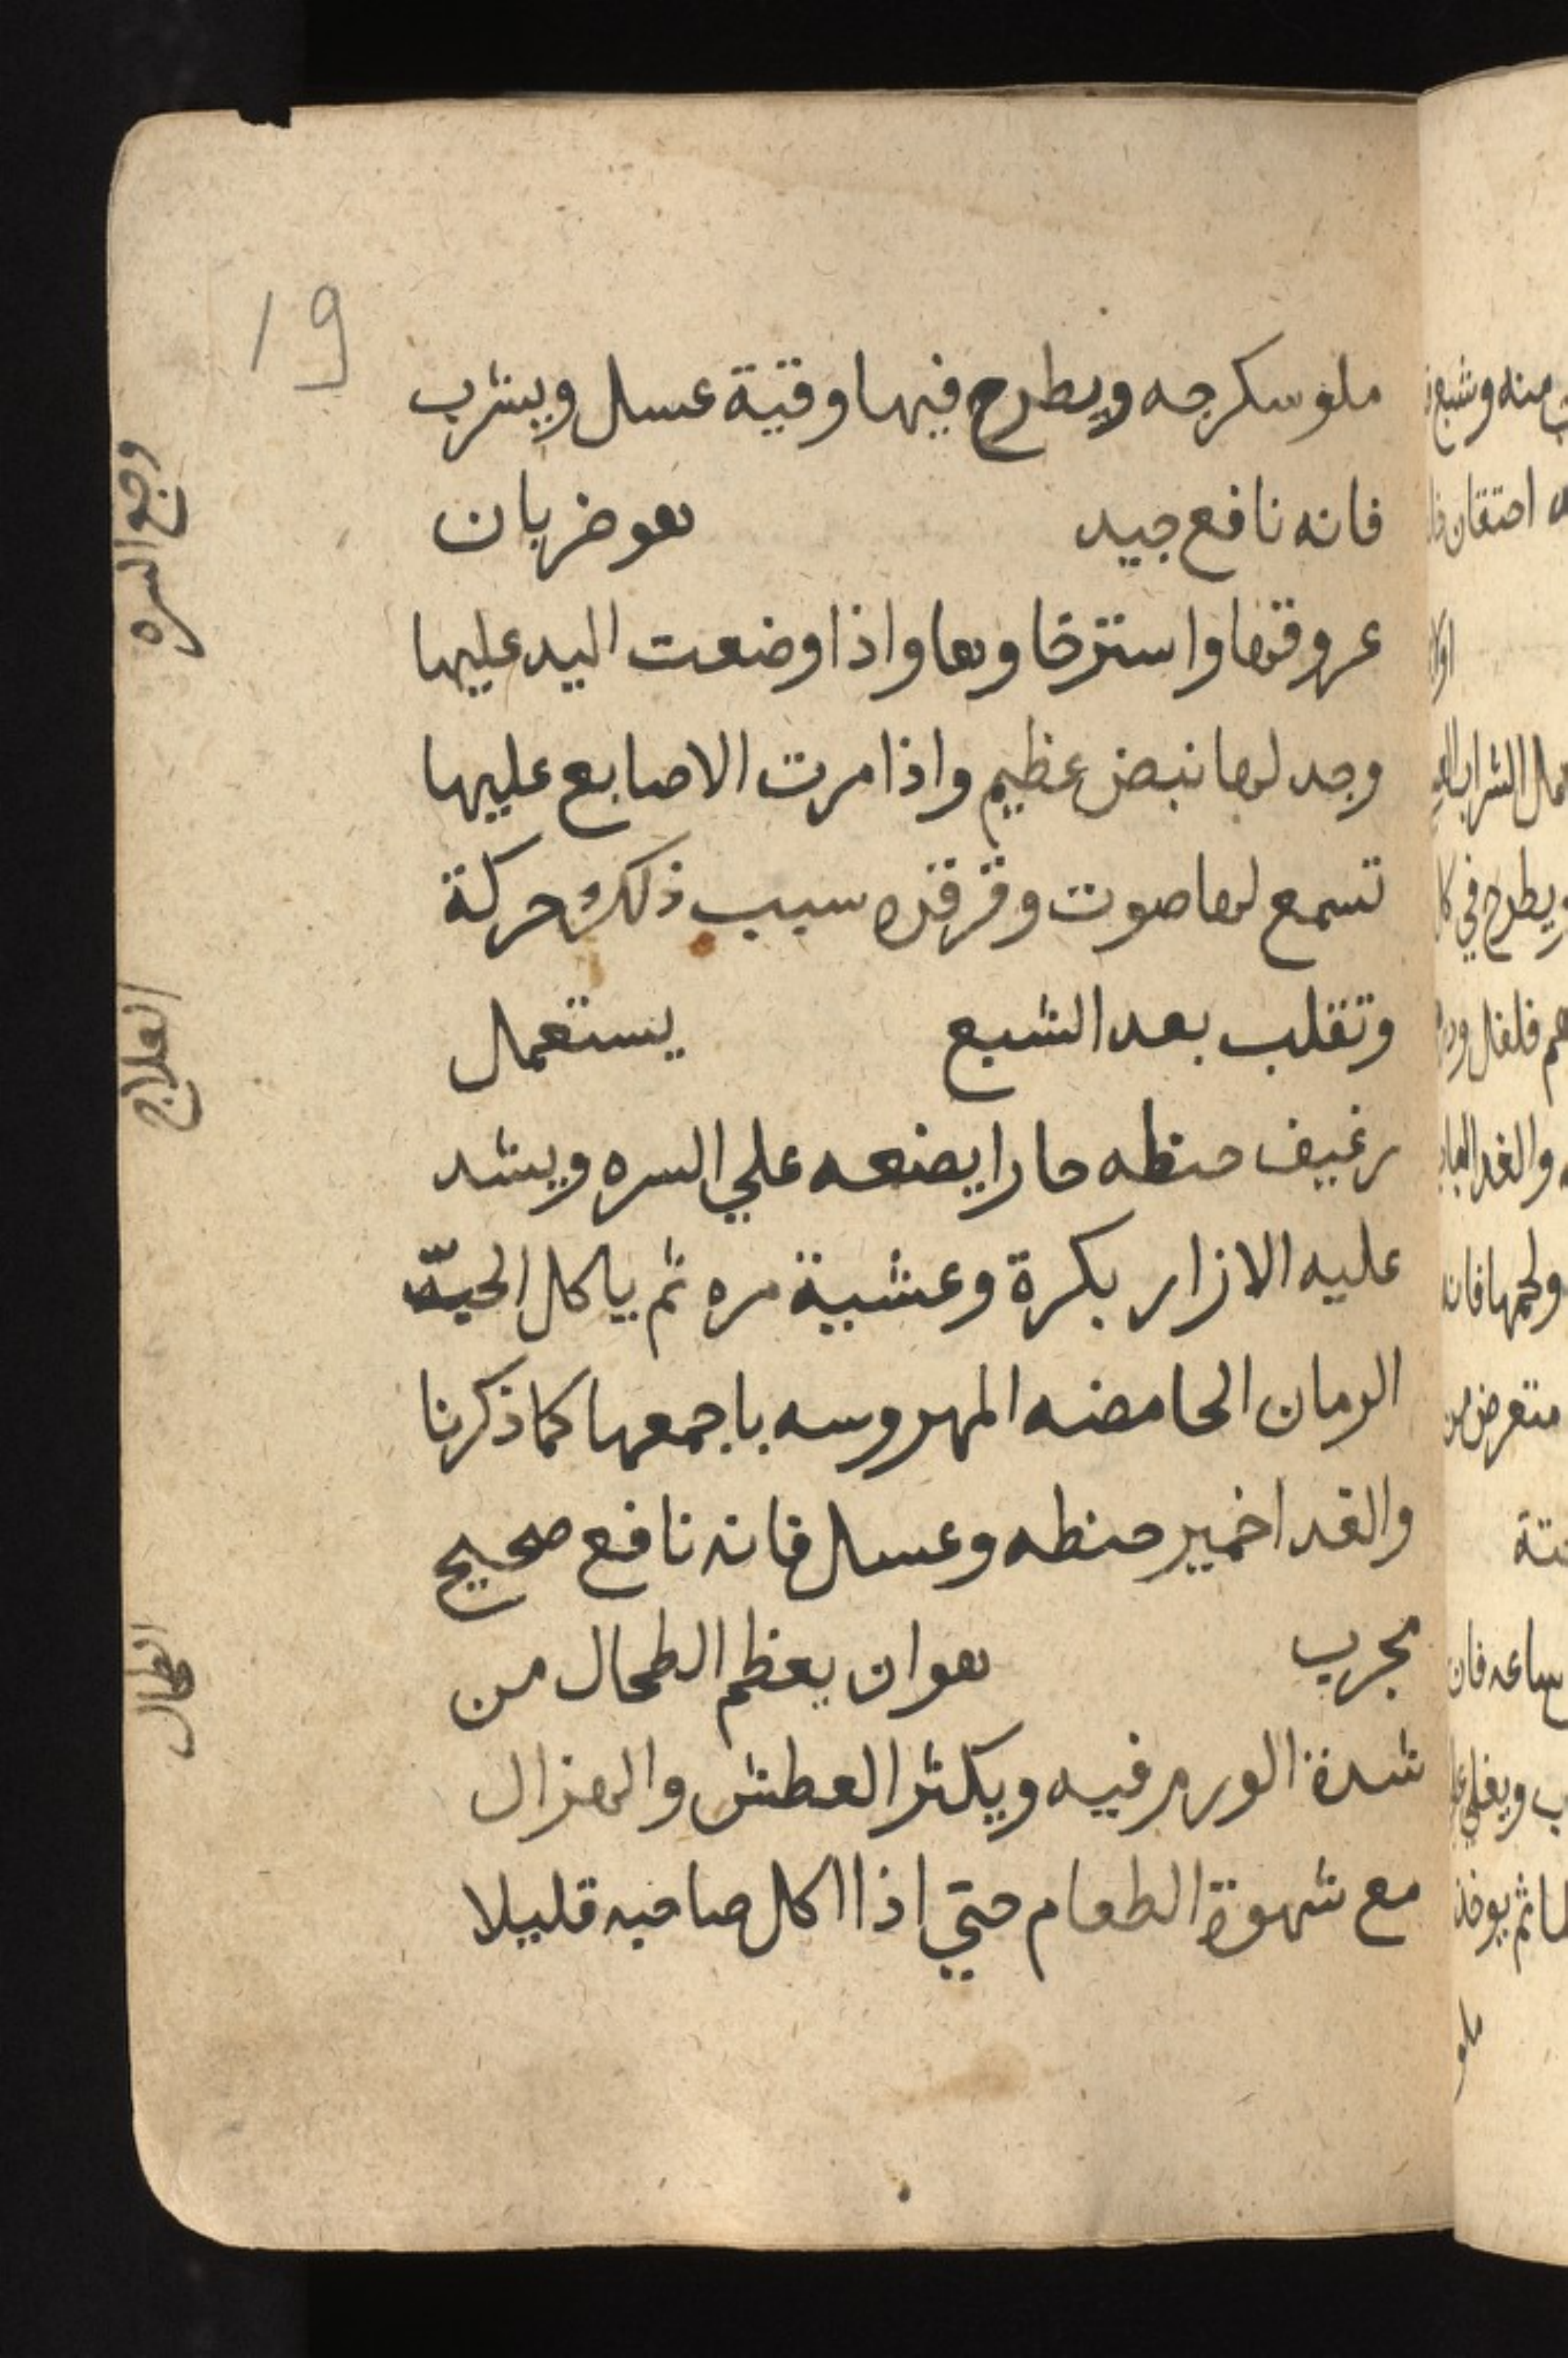 19
ملو سكرجه ويطرح فيها وقية عسل ويشرب
فانه نافع جيد هو ضربان
وجع السره
عروقها واسترخاوها واذا وضعت اليد عليها
وجد لها نبض عظيم واذا مرت الاصابع عليها
تسمع لها صوت وقرقره سبب ذلك حركة
وتقلب بعد الشبع يستعمال
العلاج
رغيف حنطه حارا يضعه علي السره ويشد
عليه الازار بكرة وعشية مره ثم ياكل الحبة
الرمان الحامضه المهروسه باجمعها كما ذكرنا
والغدا خمير حنطه وعسل فانه نافع صحيح
مجرب هو ان يعظم الطحال من
الطحال
شدة الورم فيه ويكثر العطش والهزال
مع شهوة الطعام حتي اذا اكل صاحبه قليلا